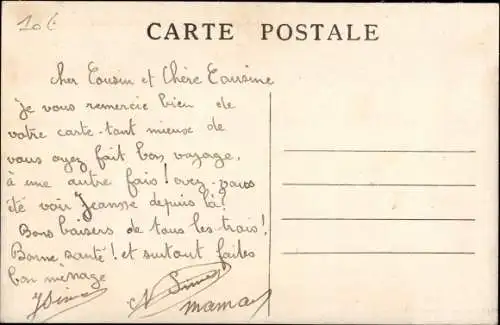 10 €
CARTE POSTALE
Cher Cousin et Chère Cousine
Je vous remercie bien de
votre carte. tant mieuse de
vous ayez fait bon voyage.
à une autre fois! avez-vous
été voir Jeanne depuis là?
Bons baisers de tous les trois!
Bonne santé! et surtout faites
bon ménage
maman